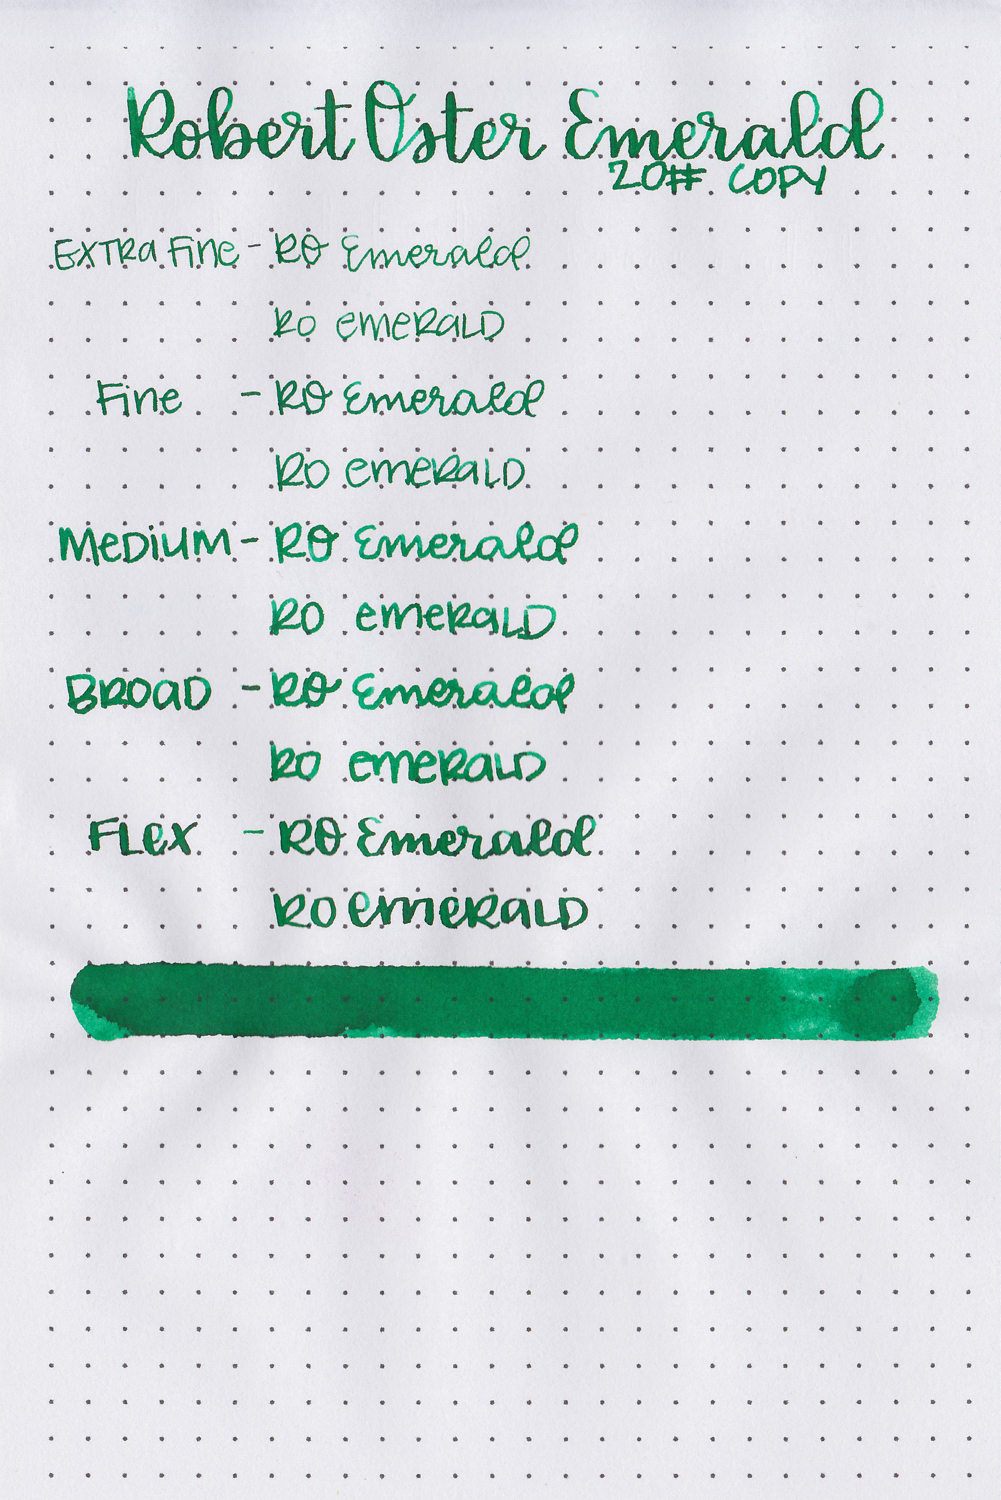 Robert Oster Emerald
20# COPY
Extra Fine - RO Emerald
RO EMERALD
Fine - RO Emerald
RO EMERALD
Medium - RO Emerald
RO EMERALD
Broad - RO Emerald
RO EMERALD
Flex - RO Emerald
RO EMERALD